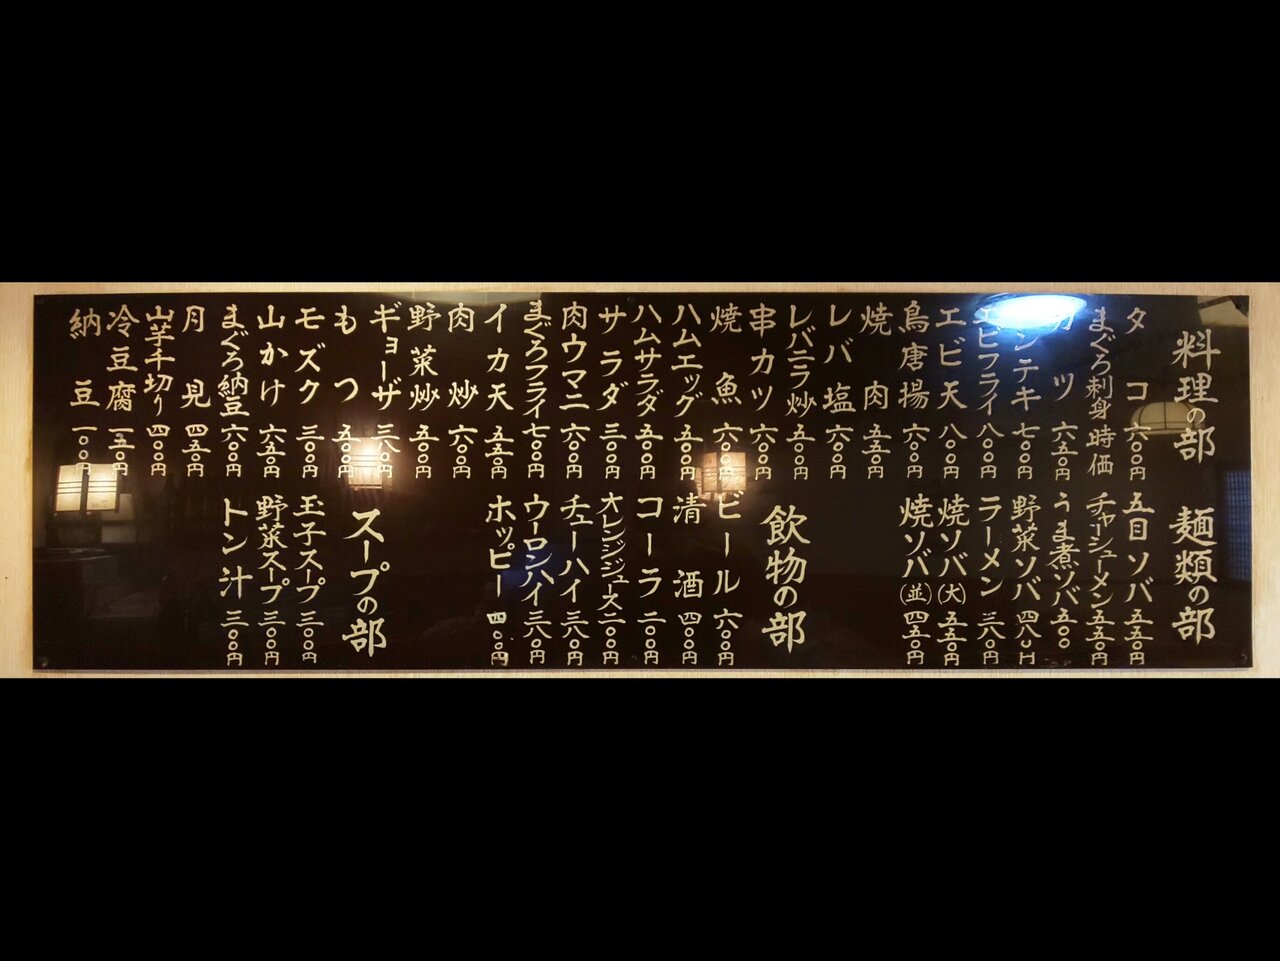 料理の部
タコ 六〇〇円
まぐろ刺身 時価
カツ 六五〇円
ンテキ 七〇〇円
エビフライ 八〇〇円
エビ天 八〇〇円
鳥唐揚 六〇〇円
焼肉 五五〇円
レバ塩 六〇〇円
レバニラ炒 五〇〇円
串カツ 六〇〇円
焼魚 六〇〇円
ハムエッグ 五〇〇円
ハムサラダ 五〇〇円
サラダ 三〇〇円
肉ウマニ 六〇〇円
まぐろフライ 七〇〇円
イカ天 五五〇円
肉炒 六〇〇円
野菜炒 五〇〇円
ギョーザ 三八〇円
もつ 五〇〇円
モズク 三〇〇円
山かけ 六五〇円
まぐろ納豆 六〇〇円
月見 四五〇円
山芋千切り 四〇〇円
冷豆腐 一五〇円
納豆 一〇〇円
麺類の部
五目ソバ 五五〇円
チャーシューメン 五五〇円
うま煮ソバ 五五〇〇
野菜ソバ 四八〇円
ラーメン 三八〇円
焼ソバ(大) 五五〇円
焼ソバ(並) 四五〇円
飲物の部
ビール 六〇〇円
清酒 四〇〇円
コーラ 二〇〇円
オレンジジュース 二〇〇円
チューハイ 三八〇円
ウーロンハイ 三八〇円
ホッピー 四〇〇円
スープの部
玉子スープ 三〇〇円
野菜スープ 三〇〇円
トン汁 三〇〇円